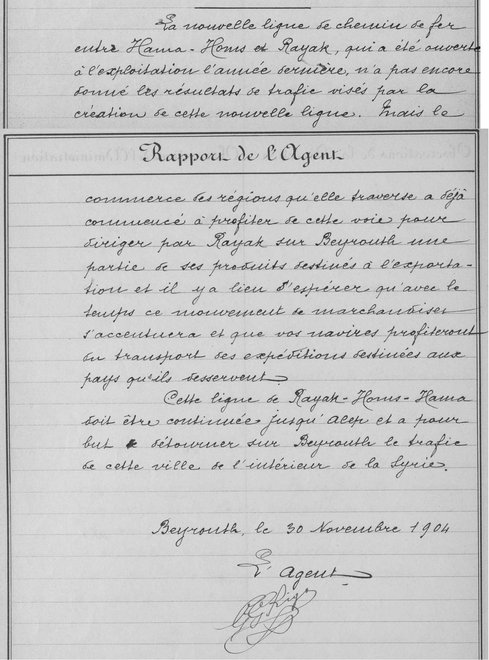 La nouvelle ligne de chemin de fer
entre Hama-Homs et Rayak, qui a été ouverte
à l'exploitation l'année dernière, n'a pas encore
donné les résultats de trafic visés par la
création de cette nouvelle ligne. Mais le
Rapport de l'Agent
commerce des régions qu'elle traverse a déjà
commencé à profiter de cette voie pour
diriger par Rayak sur Beyrouth une
partie de ses produits destinés à l'exporta-
tion et il y a lieu d'espérer qu'avec le
temps ce mouvement de marchandises
s'accentuera et que vos navires profiteront
du transport des expéditions destinées aux
pays qu'ils desservent.
Cette ligne de Rayak-Homs-Hama
doit être continuée jusqu'Alep et a pour
but détourner sur Beyrouth le trafic
de cette ville de l'intérieur de la Syrie.
Beyrouth, le 30 Novembre 1904
L'Agent